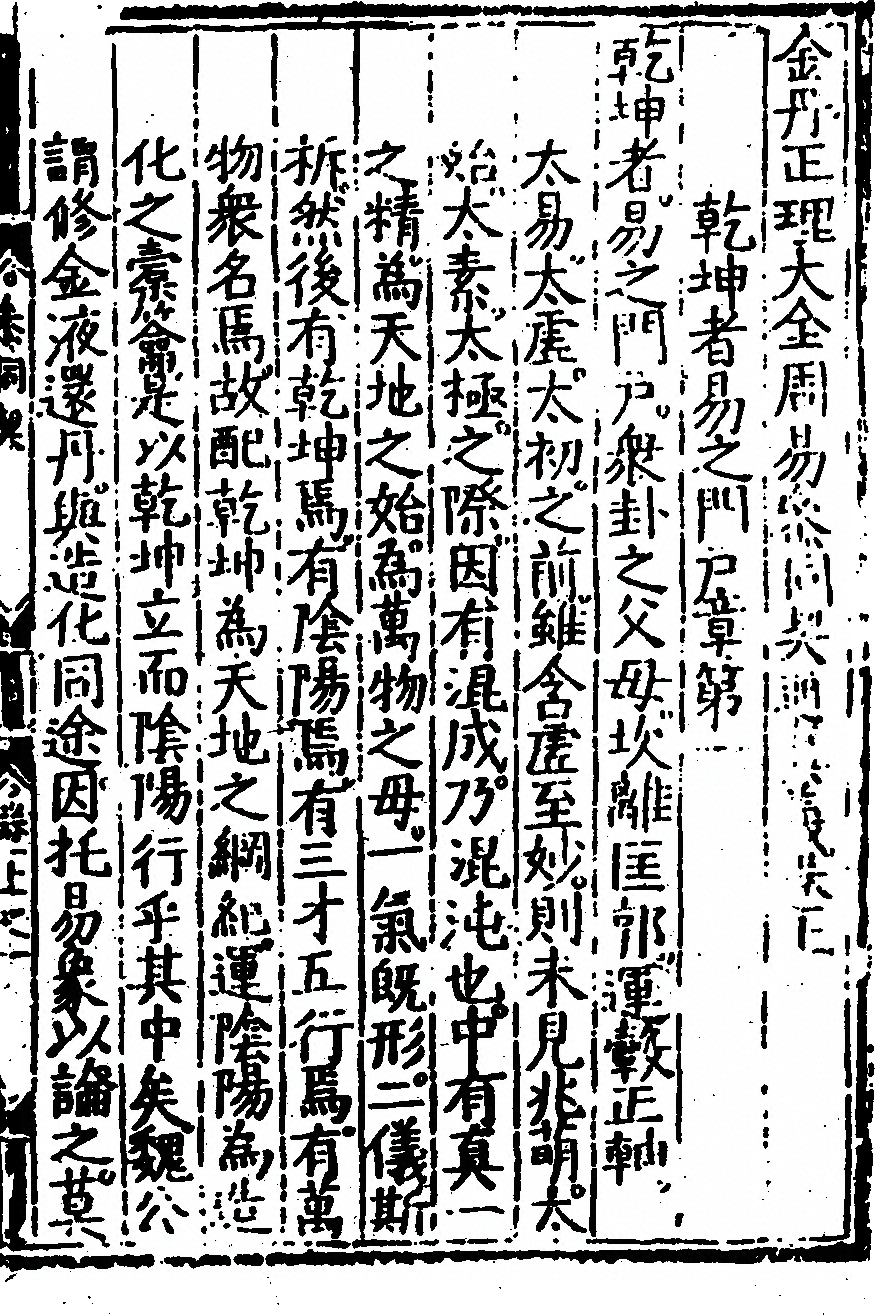 金丹正理大全周易參同契通真義卷上
乾坤者易之門戶章第一
乾坤者易之門戶衆卦之父母坎離匡郭運轂正軸
太易太虛太初之前雖含虛至妙則未見兆萌太
始太素太極之際因有混成乃混沌也中有真一
之精為天地之始為萬物之母一氣旣形二儀斯
柝然後有乾坤焉有陰陽焉有三才五行焉有萬
物衆名焉故配乾坤為天地之綱紀運陰陽為造
化之橐籥是以乾坤立而陰陽行乎其中矣魏公
謂修金液還丹與造化同途因托易象以論之莫